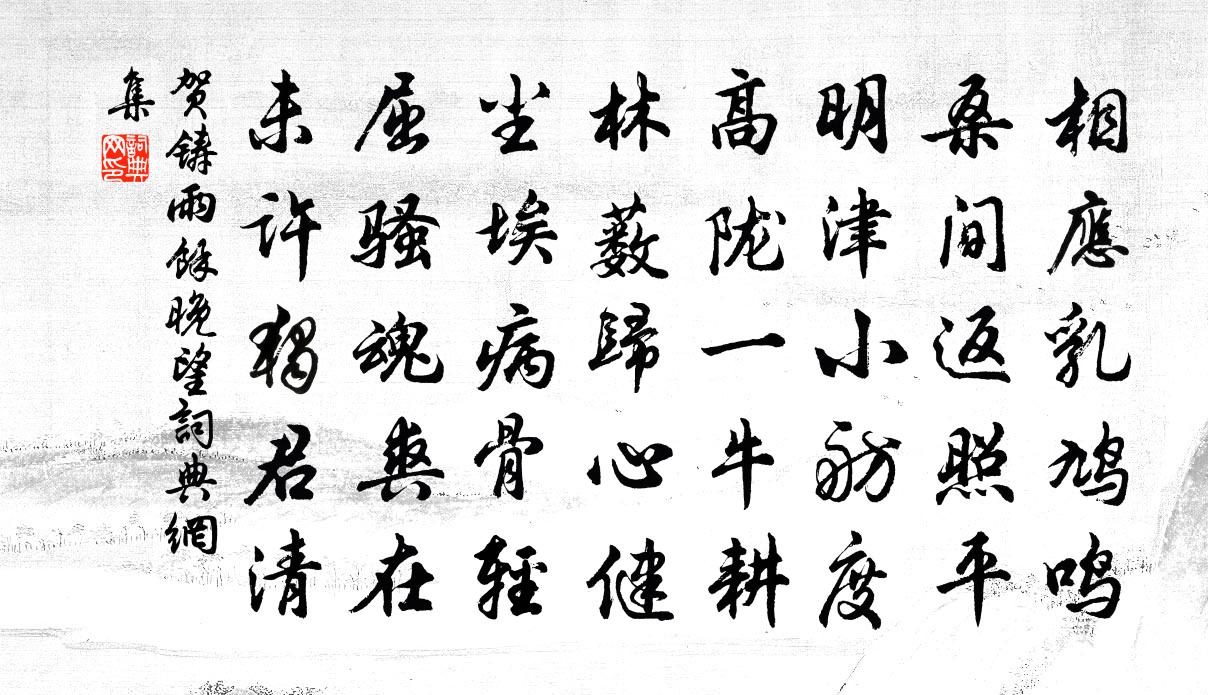 相應乳鳩鳴
桑间返照平
明津小舫度
高陇一牛耕
林薮歸心健
尘埃病骨輕
屈骚魂爽在
未许獨君清
贺鑄雨餘晚望詞典網
集
詞典
网印